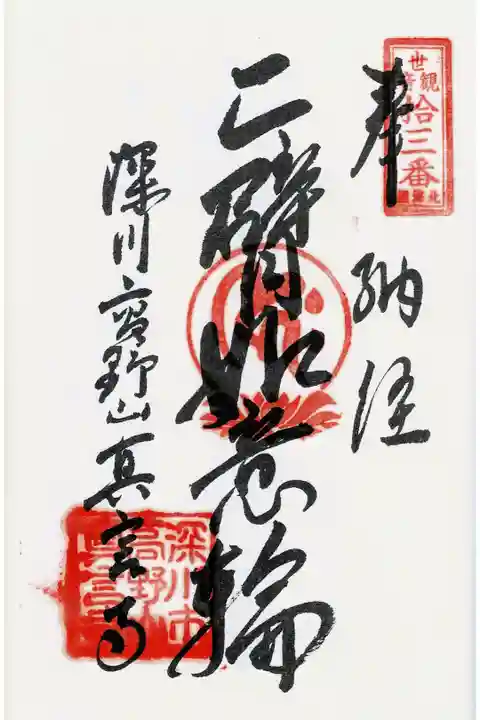 奉納経
観世音
拾三番
北海道
二臂如意輪
深川高野山真言寺
深川市
高野山
真言寺